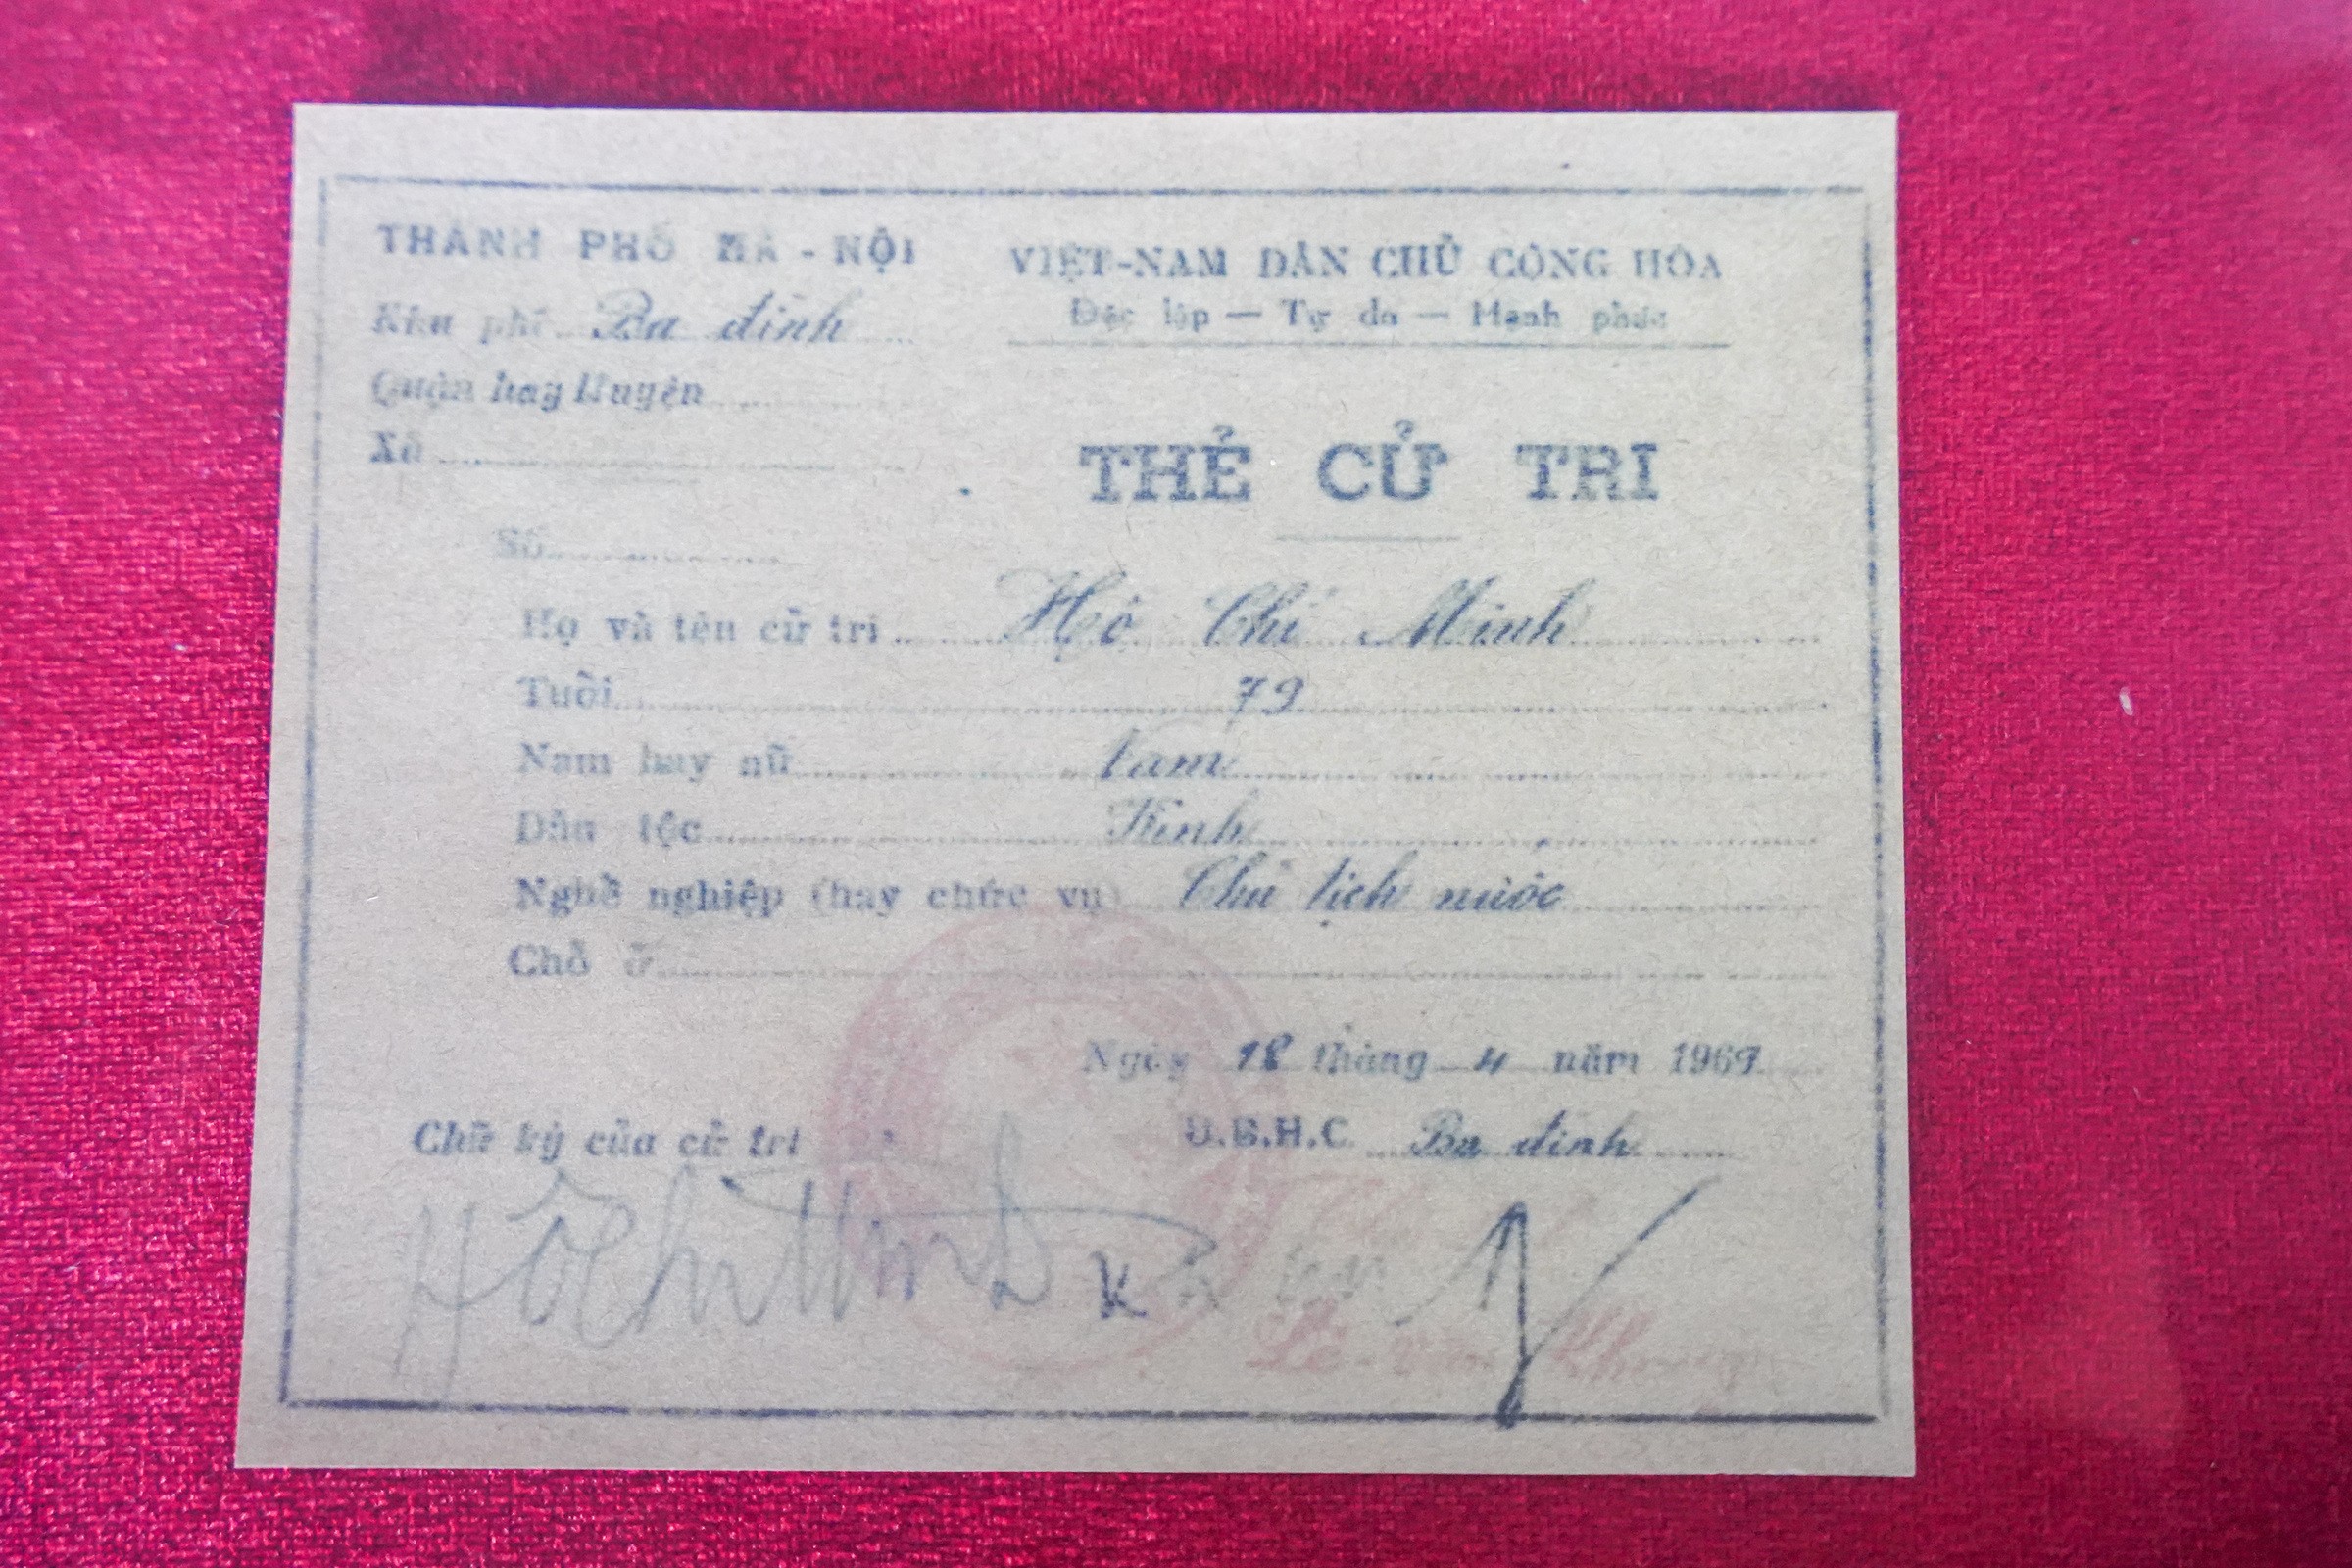 THÀNH PHỐ HÀ - NỘI
Khu phố Ba đình
Quận hay Huyện
Xã
VIỆT-NAM DÂN CHỦ CỘNG HÒA
Độc lập — Tự do — Hạnh phúc
THẺ CỬ TRI
Số
Họ và tên cử tri Hồ Chí Minh
Tuổi 79
Nam hay nữ Nam
Dân tộc Kinh
Nghề nghiệp (hay chức vụ) Chủ tịch nước
Chỗ ở
Ngày 18 tháng 4 năm 1969
Chữ ký của cử tri
U.B.H.C. Ba đình
Hồ Chí Minh
Lê-văn